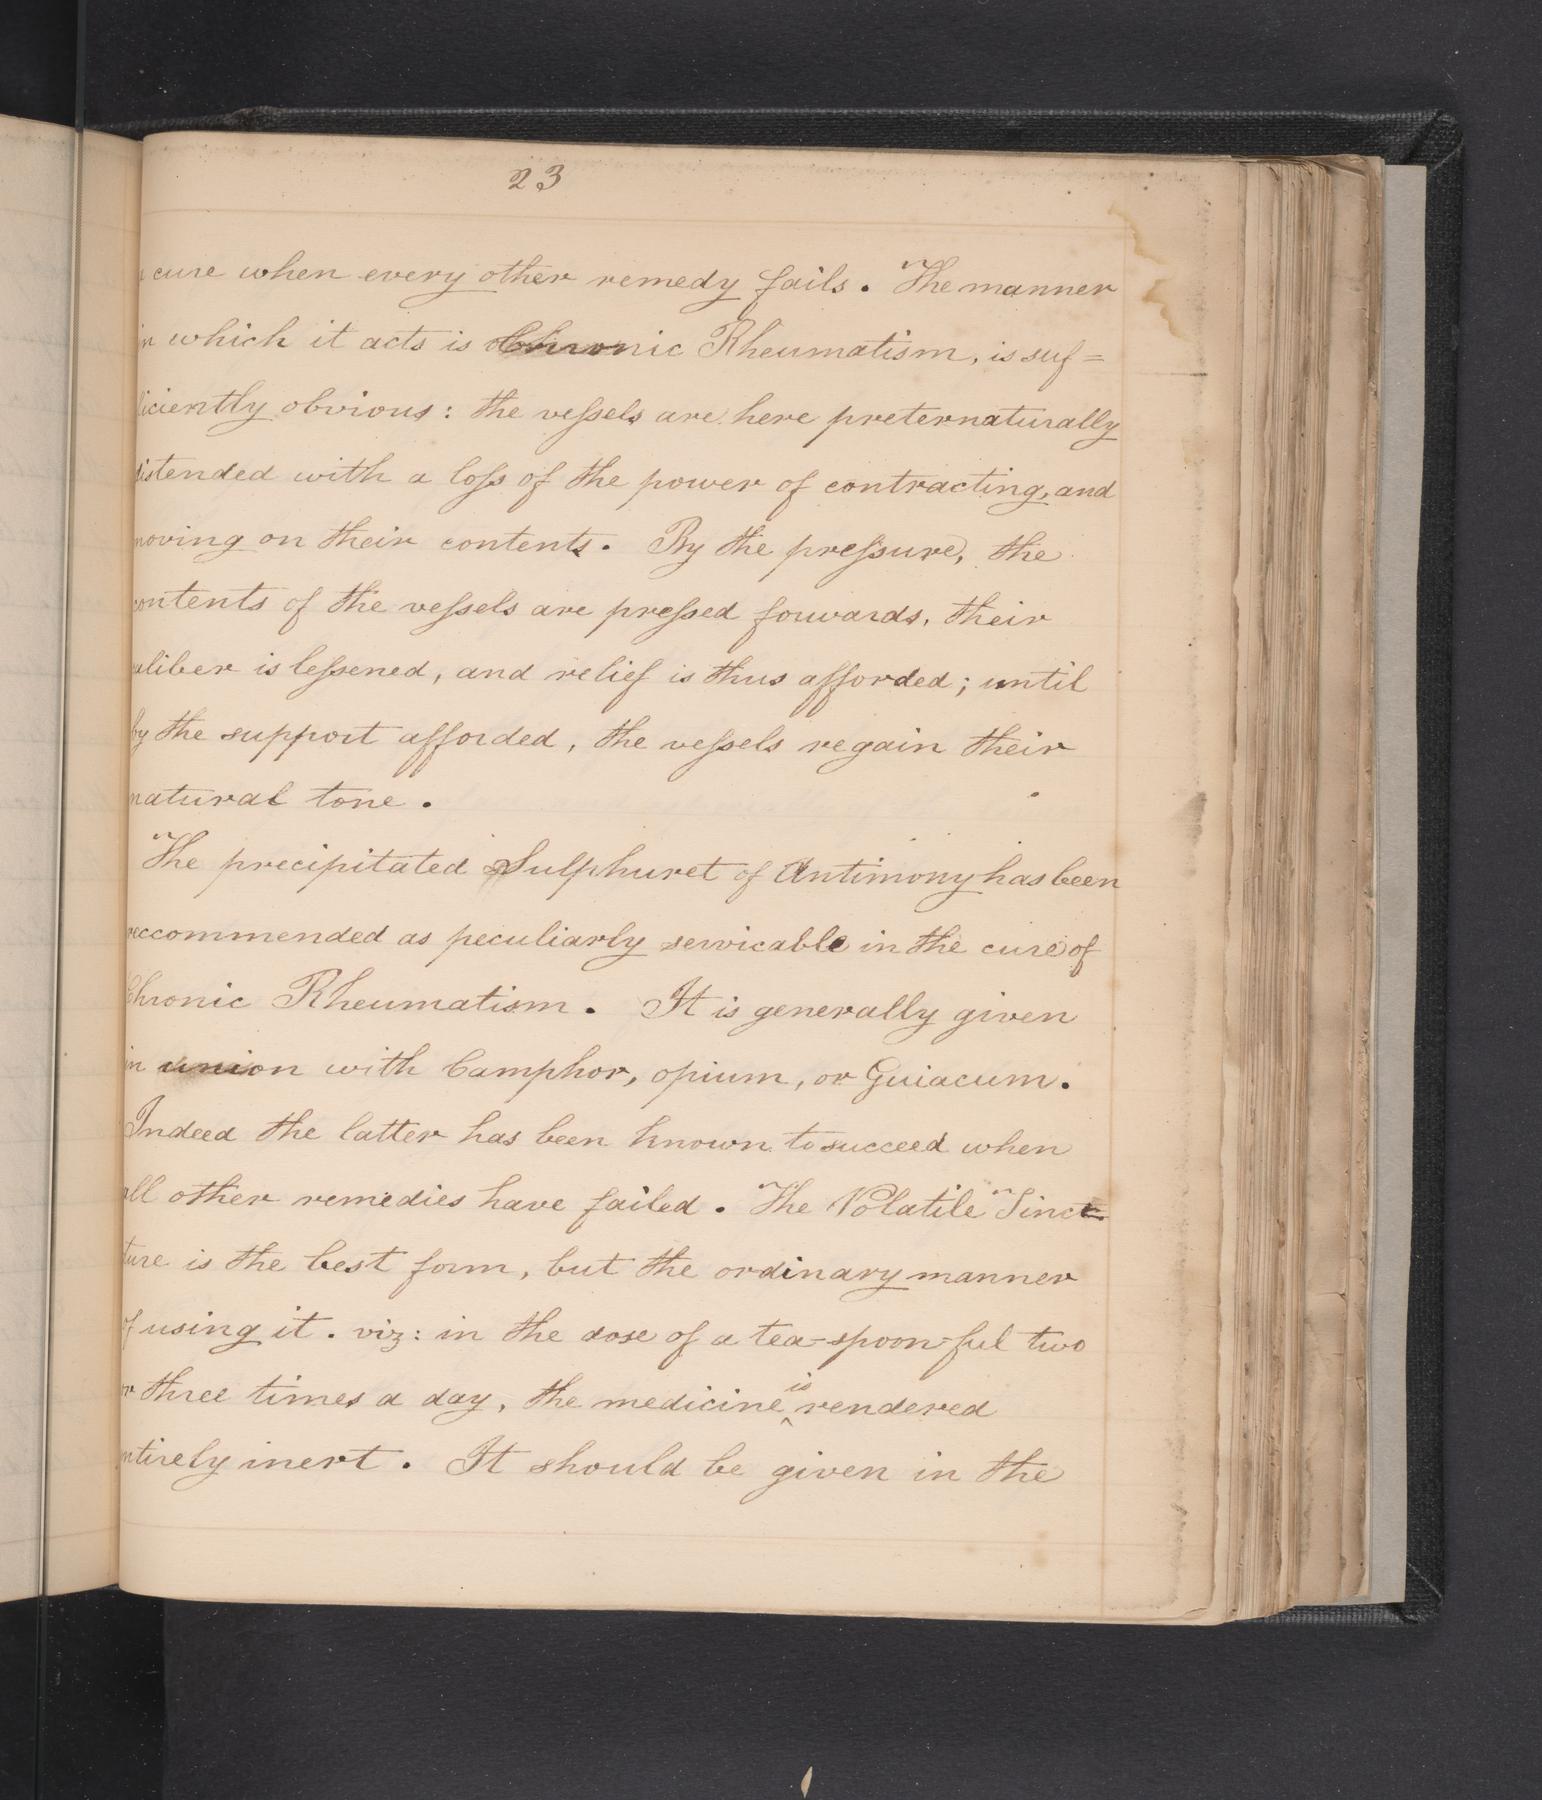 23
cure when every other remedy fails. The manner
in which it acts is Chronic Rheumatism, is suf=
ficiently obvious: the vessels are here preternaturally
distended with a loss of the power of contracting, and
moving on their contents. By the pressure, the
contents of the vessels are pressed forwards, their
caliber is lessened, and relief is thus afforded; until
by the support afforded, the vessels regain their
natural tone.
The precipitated Sulphuret of Antimony has been
reccommended as peculiarly servicable in the cure of
Chronic Rheumatism. It is generally given
in union with Camphor, opium, or Guiacum.
Indeed the latter has been known to succeed when
all other remedies have failed. The Volatile Tinc-
ture is the best form, but the ordinary manner
of using it. viz: in the dose of a tea-spoon-ful two
or three times a day, the medicine is rendered
entirely inert. It should be given in the